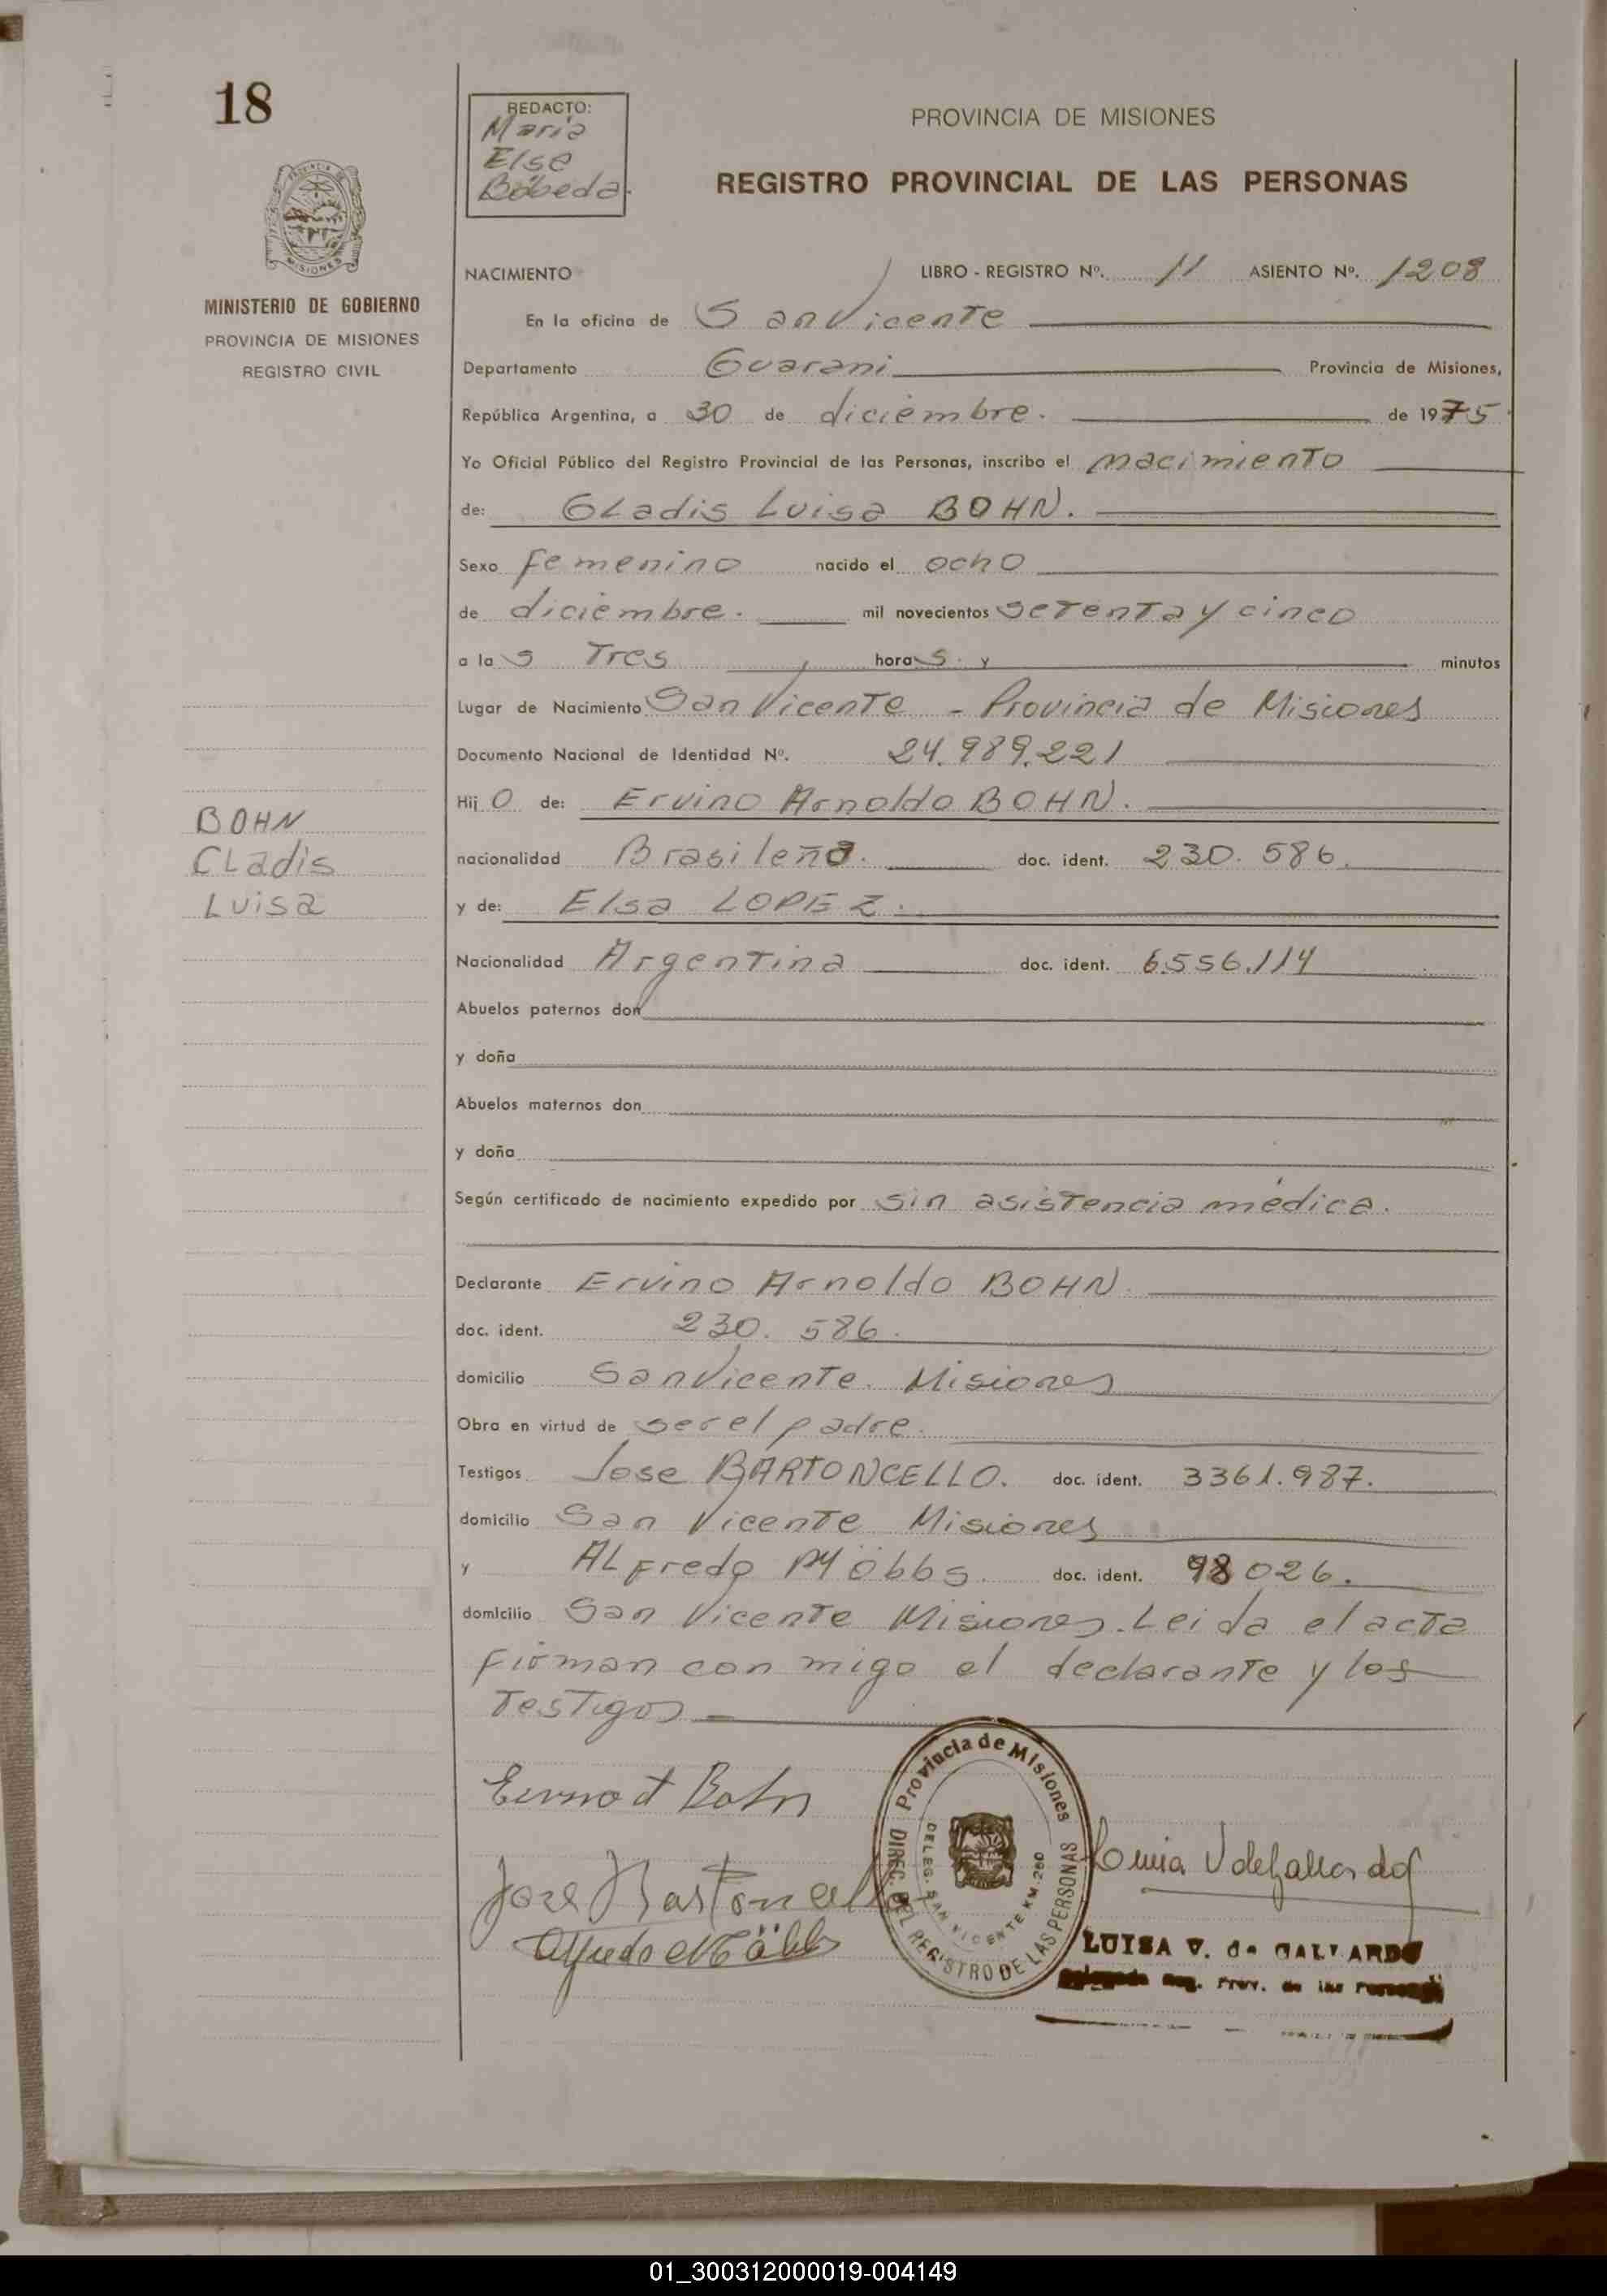 18
REDACTO:
Maria
Elsa
Bóbeda.
PROVINCIA DE MISIONES
REGISTRO PROVINCIAL DE LAS PERSONAS
MINISTERIO DE GOBIERNO
PROVINCIA DE MISIONES
REGISTRO CIVIL
NACIMIENTO LIBRO - REGISTRO Nº. 11 ASIENTO Nº. 1208
En la oficina de San Vicente
Departamento Guarani Provincia de Misiones,
República Argentina, a 30 de diciembre. de 1975
Yo Oficial Público del Registro Provincial de las Personas, inscribo el nacimiento
de: GLadis Luisa BOHN.
Sexo femenino nacido el ocho
de diciembre. mil novecientos setenta y cinco
a las Tres horas y minutos
Lugar de Nacimiento San Vicente - Provincia de Misiones
Documento Nacional de Identidad Nº. 24.989.221
Hijo de: Ervino Arnoldo BOHN.
nacionalidad Brasileña. doc. ident. 230.586.
y de: Elsa LOPEZ.
BOHN
GLadis
Luisa
Nacionalidad Argentina doc. ident. 6.556.114
Abuelos paternos don
y doña
Abuelos maternos don
y doña
Según certificado de nacimiento expedido por sin asistencia médica.
Declarante Ervino Arnoldo BOHN.
doc. ident. 230.586.
domicilio San Vicente. Misiones
Obra en virtud de ser el padre.
Testigos Jose BARTONCELLO. doc. ident. 3361.987.
domicilio San Vicente Misiones
y ALfredo Möbbs. doc. ident. 98026.
domicilio San Vicente Misiones. Leida el acta
firman con migo el declarante y los
Testigos
Provincia de Misiones
DIREC. DEL REGISTRO DE LAS PERSONAS
DELEG. SAN VICENTE KM. 260
LUISA V. de GALLARDO
Delegada Reg. Prov. de las Personas
01_300312000019-004149